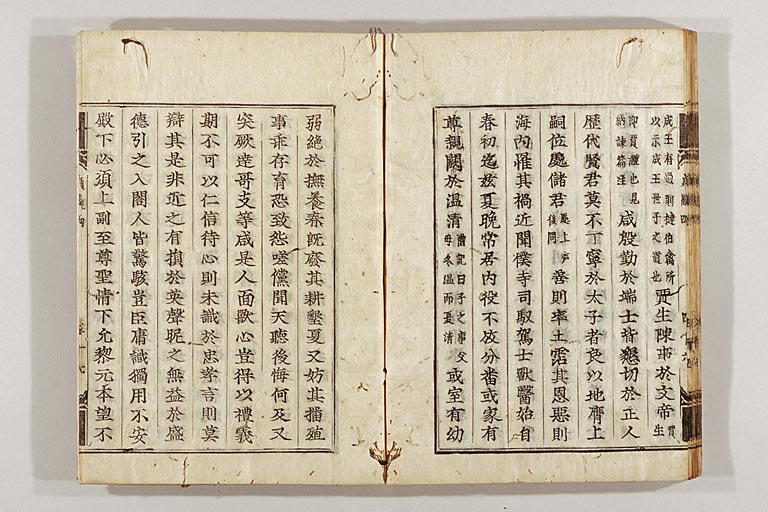 成王有過則撻伯禽所以示成王世子之道也賈生陳事於文帝賈生
卽賈誼也見納諫篇注咸殷勤於端士皆懇切於正人
歷代賢君莫不丁寧於太子者良以地膺上
嗣位處儲君處上聲後同善則率土霑其恩惡則
海內罹其禍近聞僕寺司馭駕士獸醫始自
春初迄茲夏晚常居內役不放分番或家有
尊親闕於温凊禮記曰子之事父母冬温而夏凊或室有幼
弱絶於撫養春旣廢其耕墾夏又妨其播殖
事乖存育恐致怨嗟儻聞天聽後悔何及又
突厥達哥支等咸是人面獸心豈得以禮義
期不可以仁信待心則未識於忠孝言則莫
辯其是非近之有損於英聲昵之無益於盛
德引之入閤人皆驚駭豈臣庸識獨用不安
殿下必須上副至尊聖情下允黎元本望不